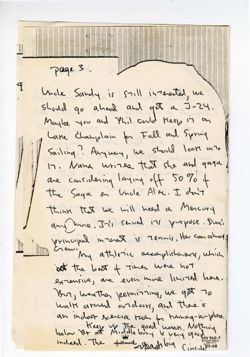 page 3
Uncle Sandy is still interested, we
should go ahead and get a J-24.
Maybe you and Phil could keep it on
Lake Champlain for Fall and Spring
Sailing? Anyway, we should look into
it. Nana writes that she and gaga
are considering laying off 50% of
the Saga on Uncle Alec. I don't
think that we will need a Mercury
anymore. It's served its purpose. Dan's
principal interest is tennis. He can always
crew.
My athletic accomplishments, which
at the best of times were not
extensive, are even more limited here.
But, weather permitting, we get to
walk around outdoors, and there is
an indoor exercise room for running-in-place.
Keep up the good work. Nothing
below B at Middlebury is very good
indeed. The